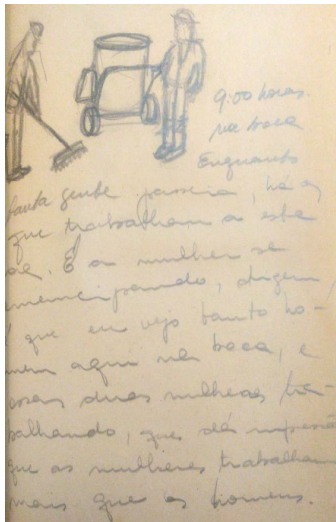 9:00 horas
na boca
Enquanto
tanta gente passeia, há os
que trabalham a esta
É a mulher se
emancipando, dizem,
que eu vejo tanto ho-
mem aqui na boca, e
essas duas mulheres tra-
balhando, que dá impressão
que as mulheres trabalham
mais que os homens.